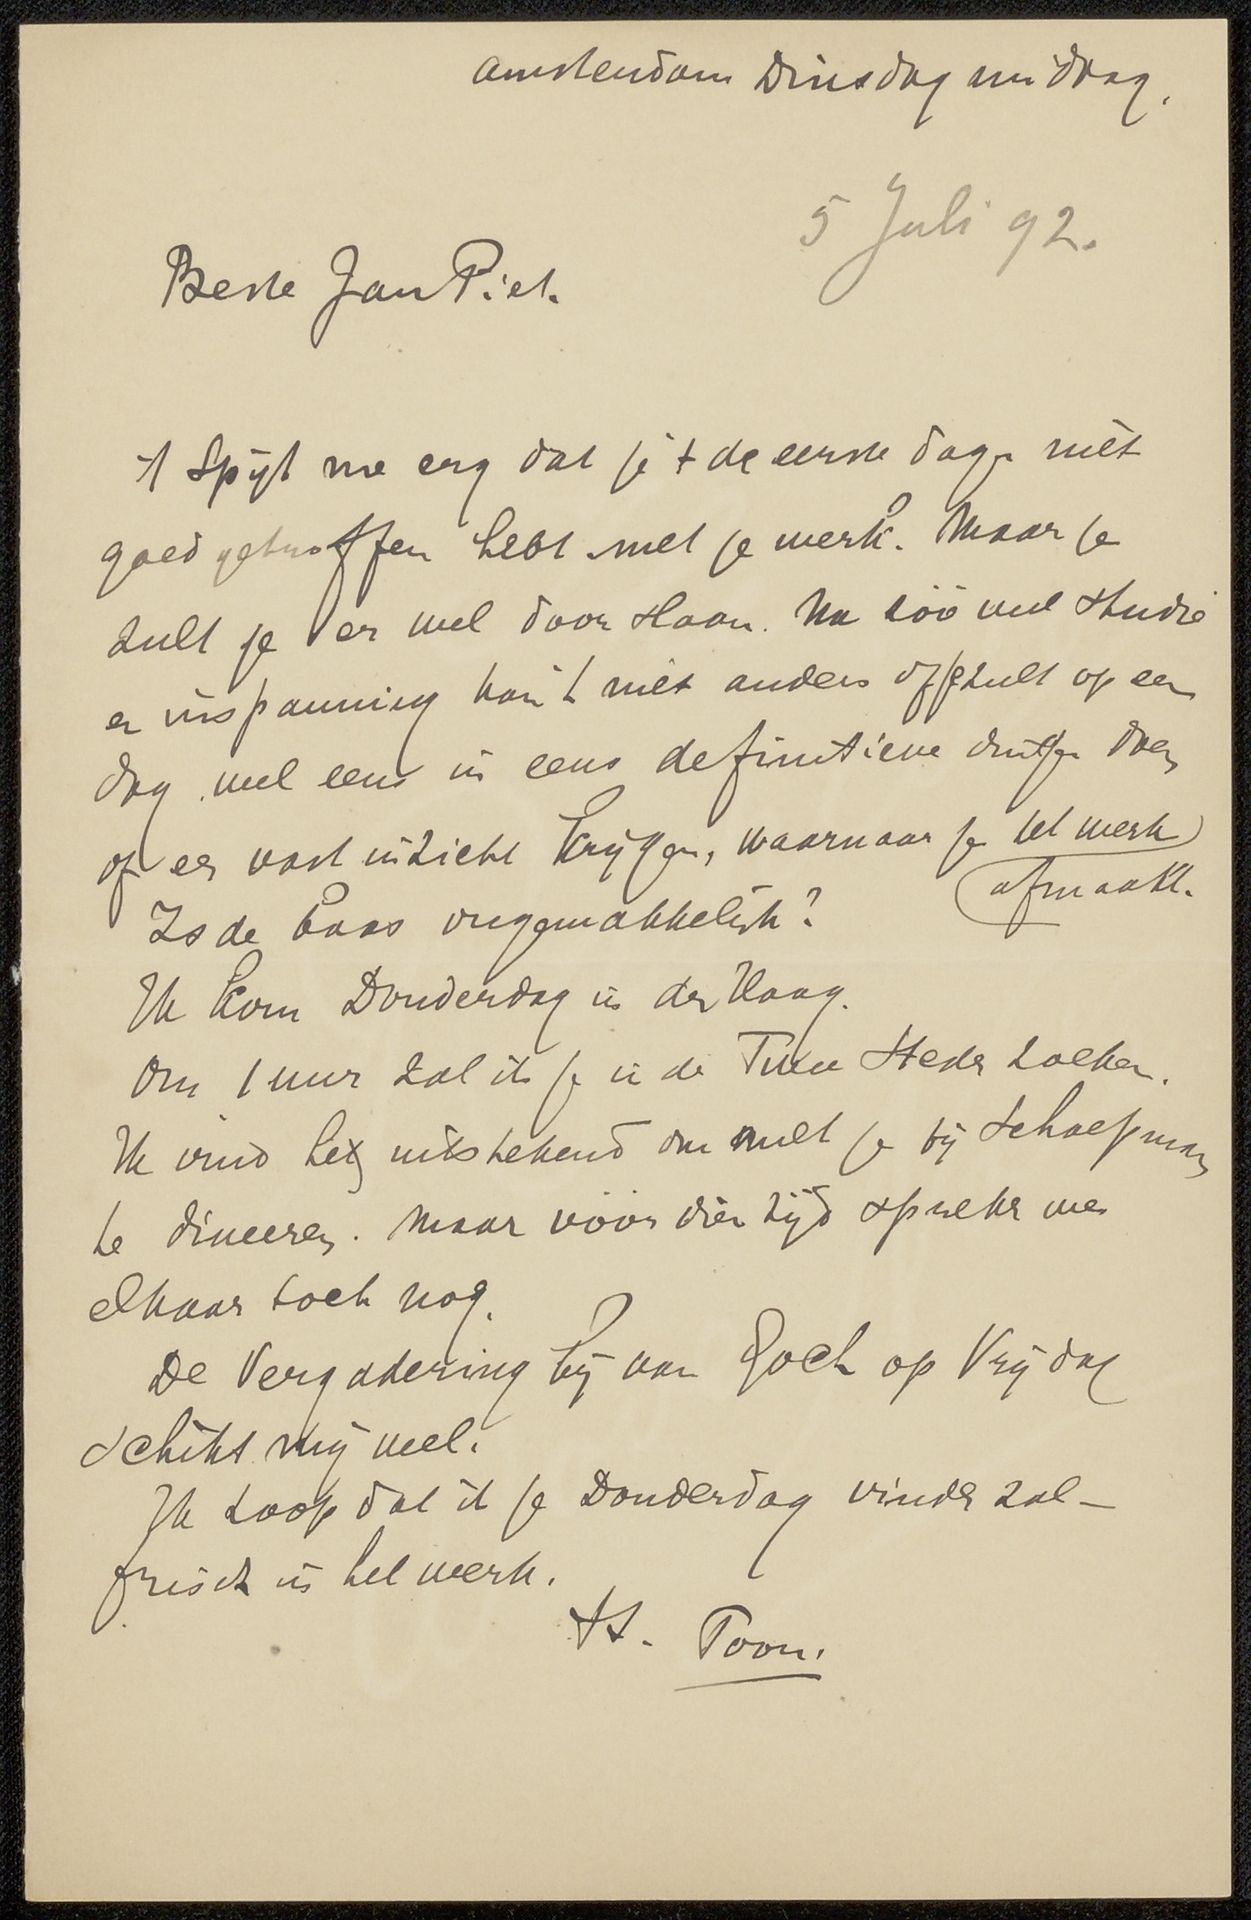 Amsterdam Dinsdag middag.
5 Juli 92.
Beste Jan Piet.
't Spijt me erg dat je 't de eerste dagen niet
goed getroffen hebt met je werk. Maar je
zult je er wel door slaan. Na zóó veel studie
en inspanning kan 't niet anders of je zult op een
dag wel eens in eens definitieve dingen doen
of een vast inzicht krijgen, waarnaar je het werk
afmaakt.
Is de baas ongemakkelijk?
Ik kom Donderdag in den Haag.
Om 1 uur zal ik je in de Twee Steden zoeken.
Ik vind het uitstekend om met je bij Schaepman
te dineeren. Maar vóór dien tijd spreken we
elkaar toch nog.
De Vergadering bij van Gogh op Vrijdag
schikt mij wel.
Ik hoop dat ik je Donderdag vinden zal –
frisch in het werk.
tt. Toon.